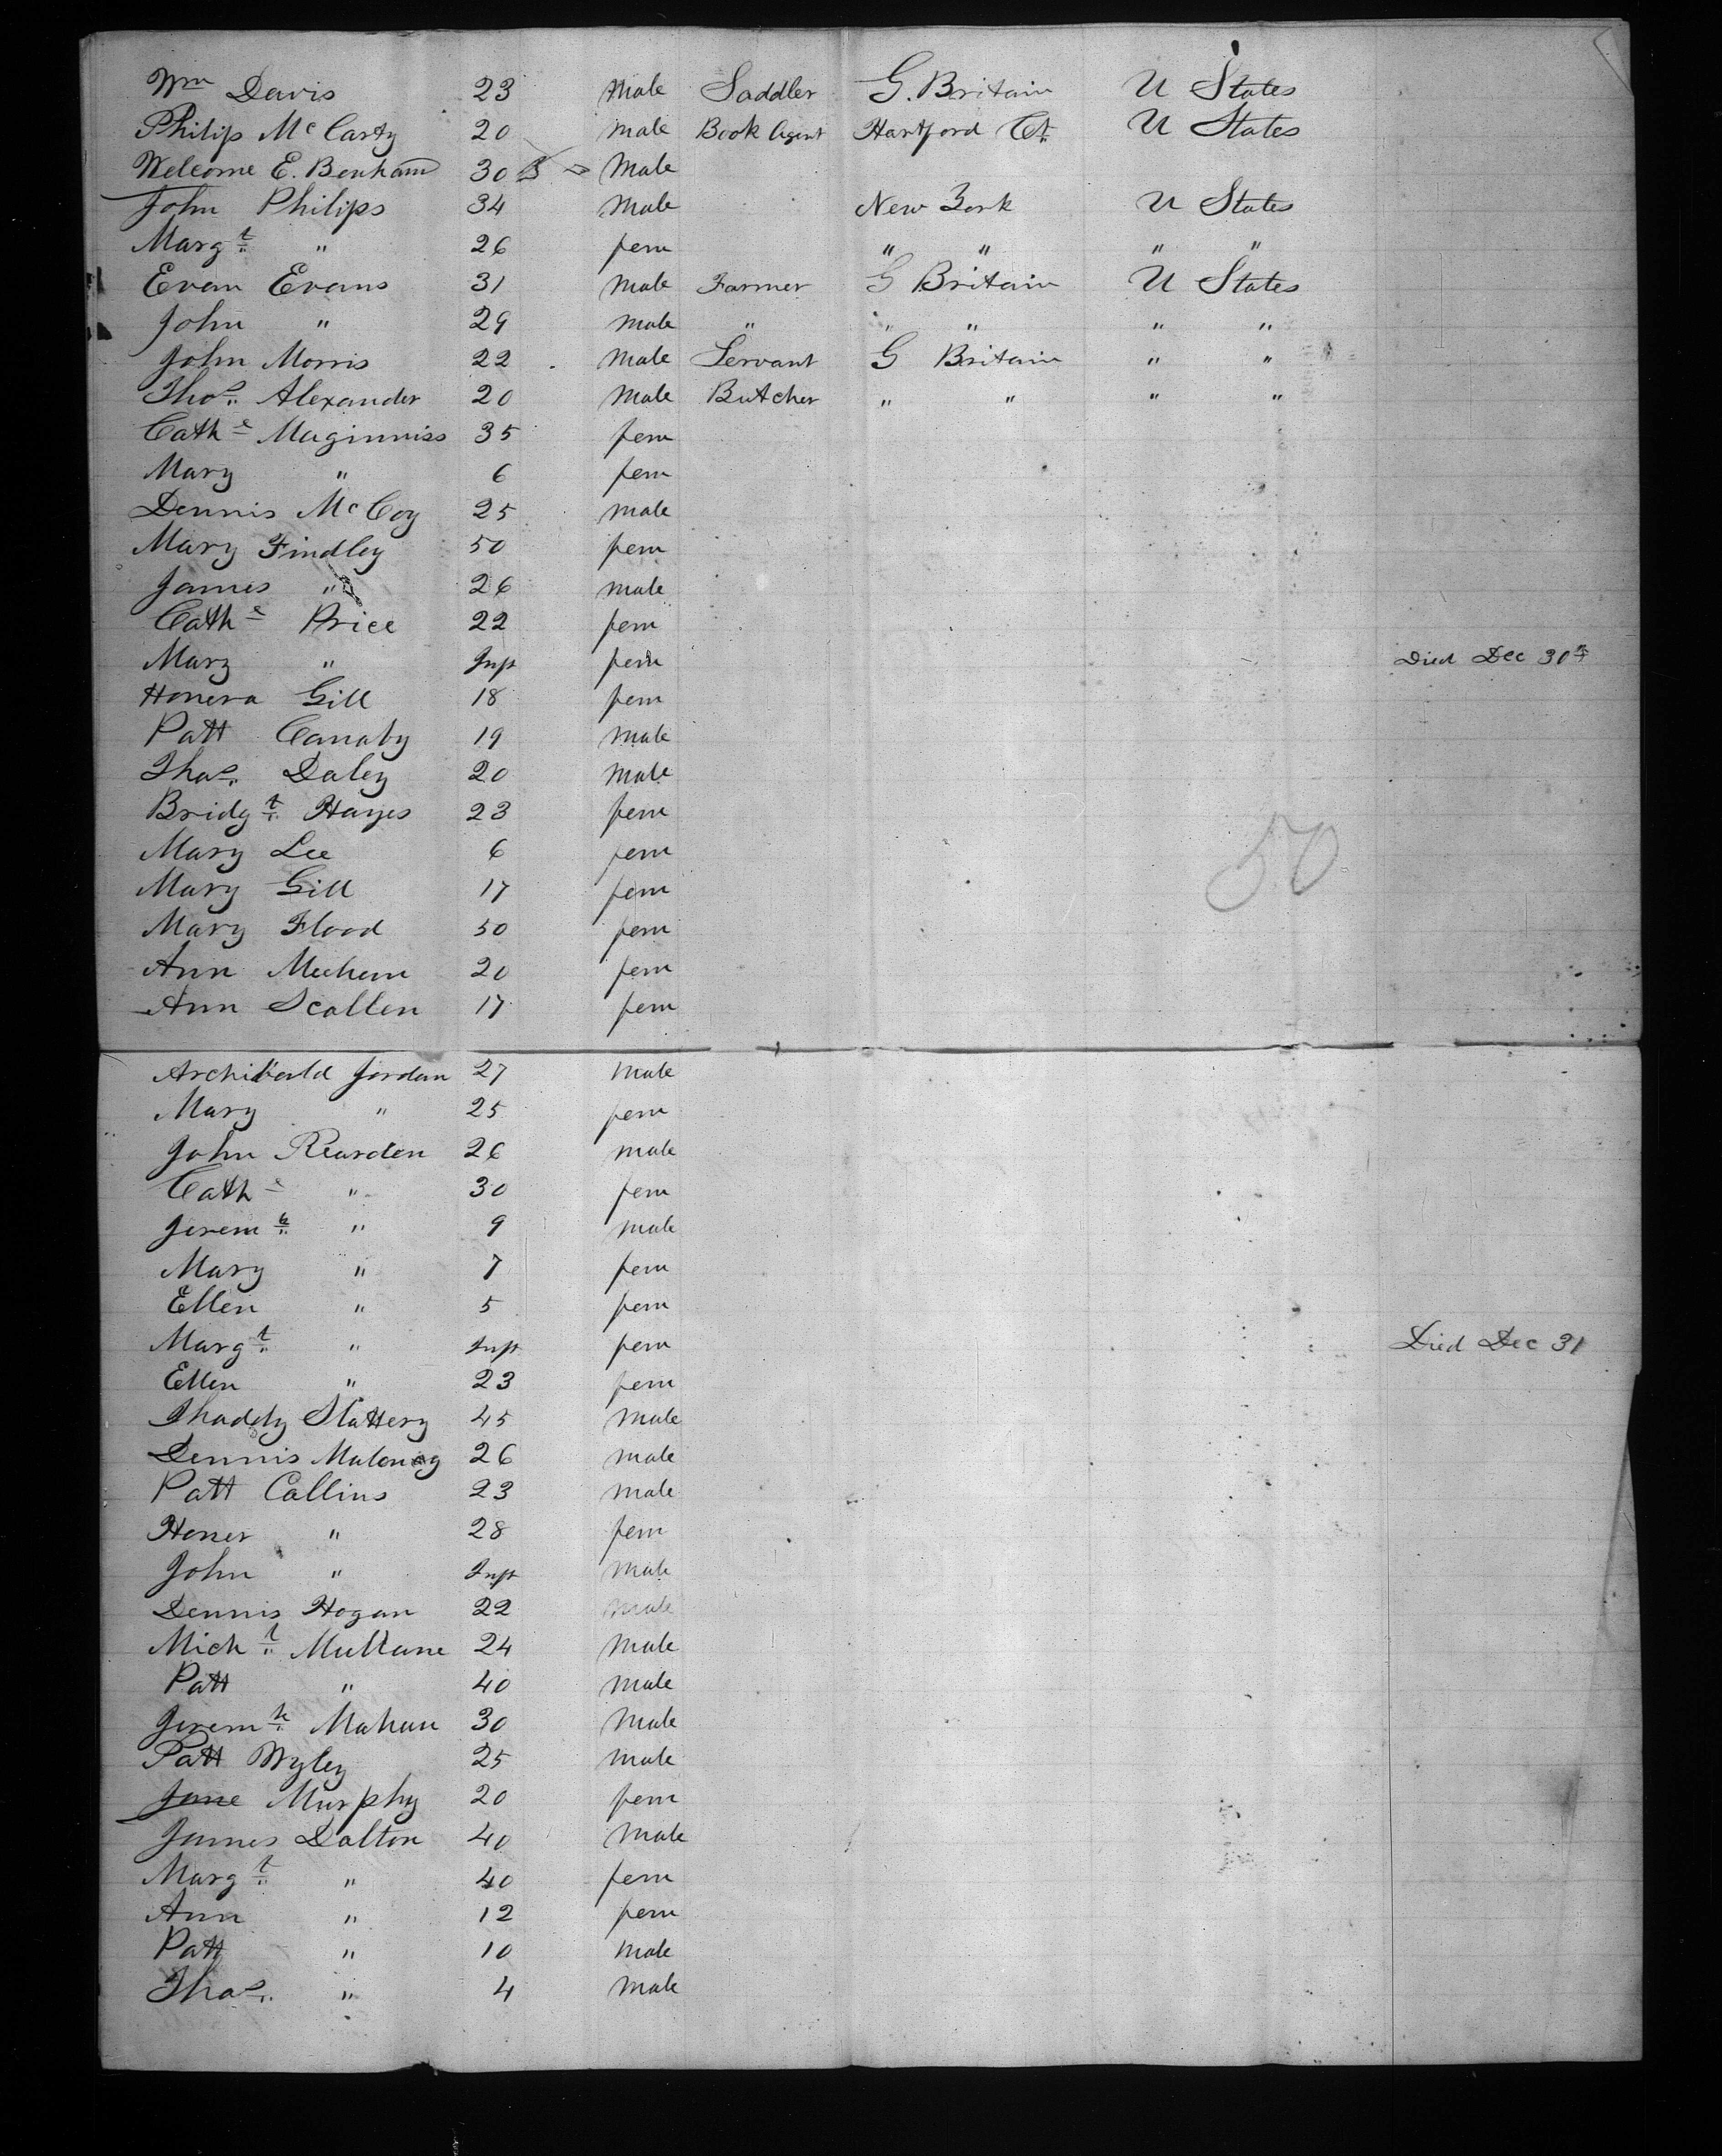 Wm Davis 23 Male Saddler G. Britain U States
Philip Mc Carty 20 male Book Agent Hartford Ct. U States
Welcome E. Benham 30 Male
John Philips 34 Male New York U States
Margt " 26 fem " " " "
Evan Evans 31 Male Farmer G Britain U States
John " 29 Male " " " " "
John Morris 22 Male Servant G Britain " "
Thos. Alexander 20 Male Butcher " " " "
Cathe Maginniss 35 fem
Mary " 6 fem
Dennis Mc Coy 25 Male
Mary Findley 50 fem
James " 26 male
Cathe Price 22 fem
Mary " Inft fem Died Dec 30th
Honera Gill 18 fem
Patt Canaby 19 Male
Thos. Daley 20 Male
Bridgt Hayes 23 fem
Mary Lee 6 fem
50
Mary Gill 17 fem
Mary Flood 50 fem
Ann Meehem 20 fem
Ann Scollen 17 fem
Archibald Jordan 27 Male
Mary " 25 fem
John Rearden 26 male
Cathe " 30 fem
Jeremh " 9 male
Mary " 7 fem
Ellen " 5 fem
Margt " Inft fem Died Dec 31
Ellen " 23 fem
Thaddy Slattery 45 Male
Dennis Maloney 26 male
Patt Collins 23 male
Honer " 28 fem
John " Inft Male
Dennis Hogan 22 male
Michl Mullane 24 Male
Patt " 40 Male
Jeremh Mahan 30 Male
Patt Wyley 25 male
Jane Murphy 20 fem
James Dalton 40 Male
Margt " 40 fem
Ann " 12 fem
Patt " 10 Male
Thos. " 4 Male